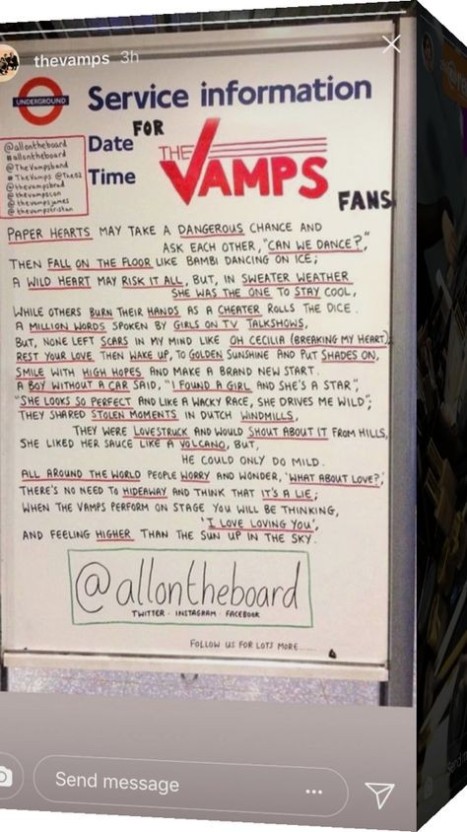 thevamps 3h
UNDERGROUND
Service information
Date FOR
Time
THE VAMPS
FANS
@allontheboard
#allontheboard
@TheVampsband
#TheVamps @TheO2
@thevampsbrad
@thevampscon
@thevampsjames
@thevampstristan
PAPER HEARTS MAY TAKE A DANGEROUS CHANCE AND
ASK EACH OTHER, "CAN WE DANCE?",
THEN FALL ON THE FLOOR LIKE BAMBI DANCING ON ICE;
A WILD HEART MAY RISK IT ALL, BUT, IN SWEATER WEATHER
SHE WAS THE ONE TO STAY COOL,
WHILE OTHERS BURN THEIR HANDS AS A CHEATER ROLLS THE DICE.
A MILLION WORDS SPOKEN BY GIRLS ON TV TALKSHOWS,
BUT, NONE LEFT SCARS IN MY MIND LIKE OH CECILIA (BREAKING MY HEART)
REST YOUR LOVE THEN WAKE UP, TO GOLDEN SUNSHINE AND PUT SHADES ON,
SMILE WITH HIGH HOPES AND MAKE A BRAND NEW START.
A BOY WITHOUT A CAR SAID, "I FOUND A GIRL AND SHE'S A STAR",
"SHE LOOKS SO PERFECT AND LIKE A WACKY RACE, SHE DRIVES ME WILD";
THEY SHARED STOLEN MOMENTS IN DUTCH WINDMILLS,
THEY WERE LOVESTRUCK AND WOULD SHOUT ABOUT IT FROM HILLS,
SHE LIKED HER SAUCE LIKE A VOLCANO, BUT,
HE COULD ONLY DO MILD.
ALL AROUND THE WORLD PEOPLE WORRY AND WONDER, 'WHAT ABOUT LOVE?',
THERE'S NO NEED TO HIDEAWAY AND THINK THAT IT'S A LIE;
WHEN THE VAMPS PERFORM ON STAGE YOU WILL BE THINKING,
'I LOVE LOVING YOU',
AND FEELING HIGHER THAN THE SUN UP IN THE SKY.
@allontheboard
TWITTER · INSTAGRAM · FACEBOOK
FOLLOW US FOR LOTS MORE...
Send message